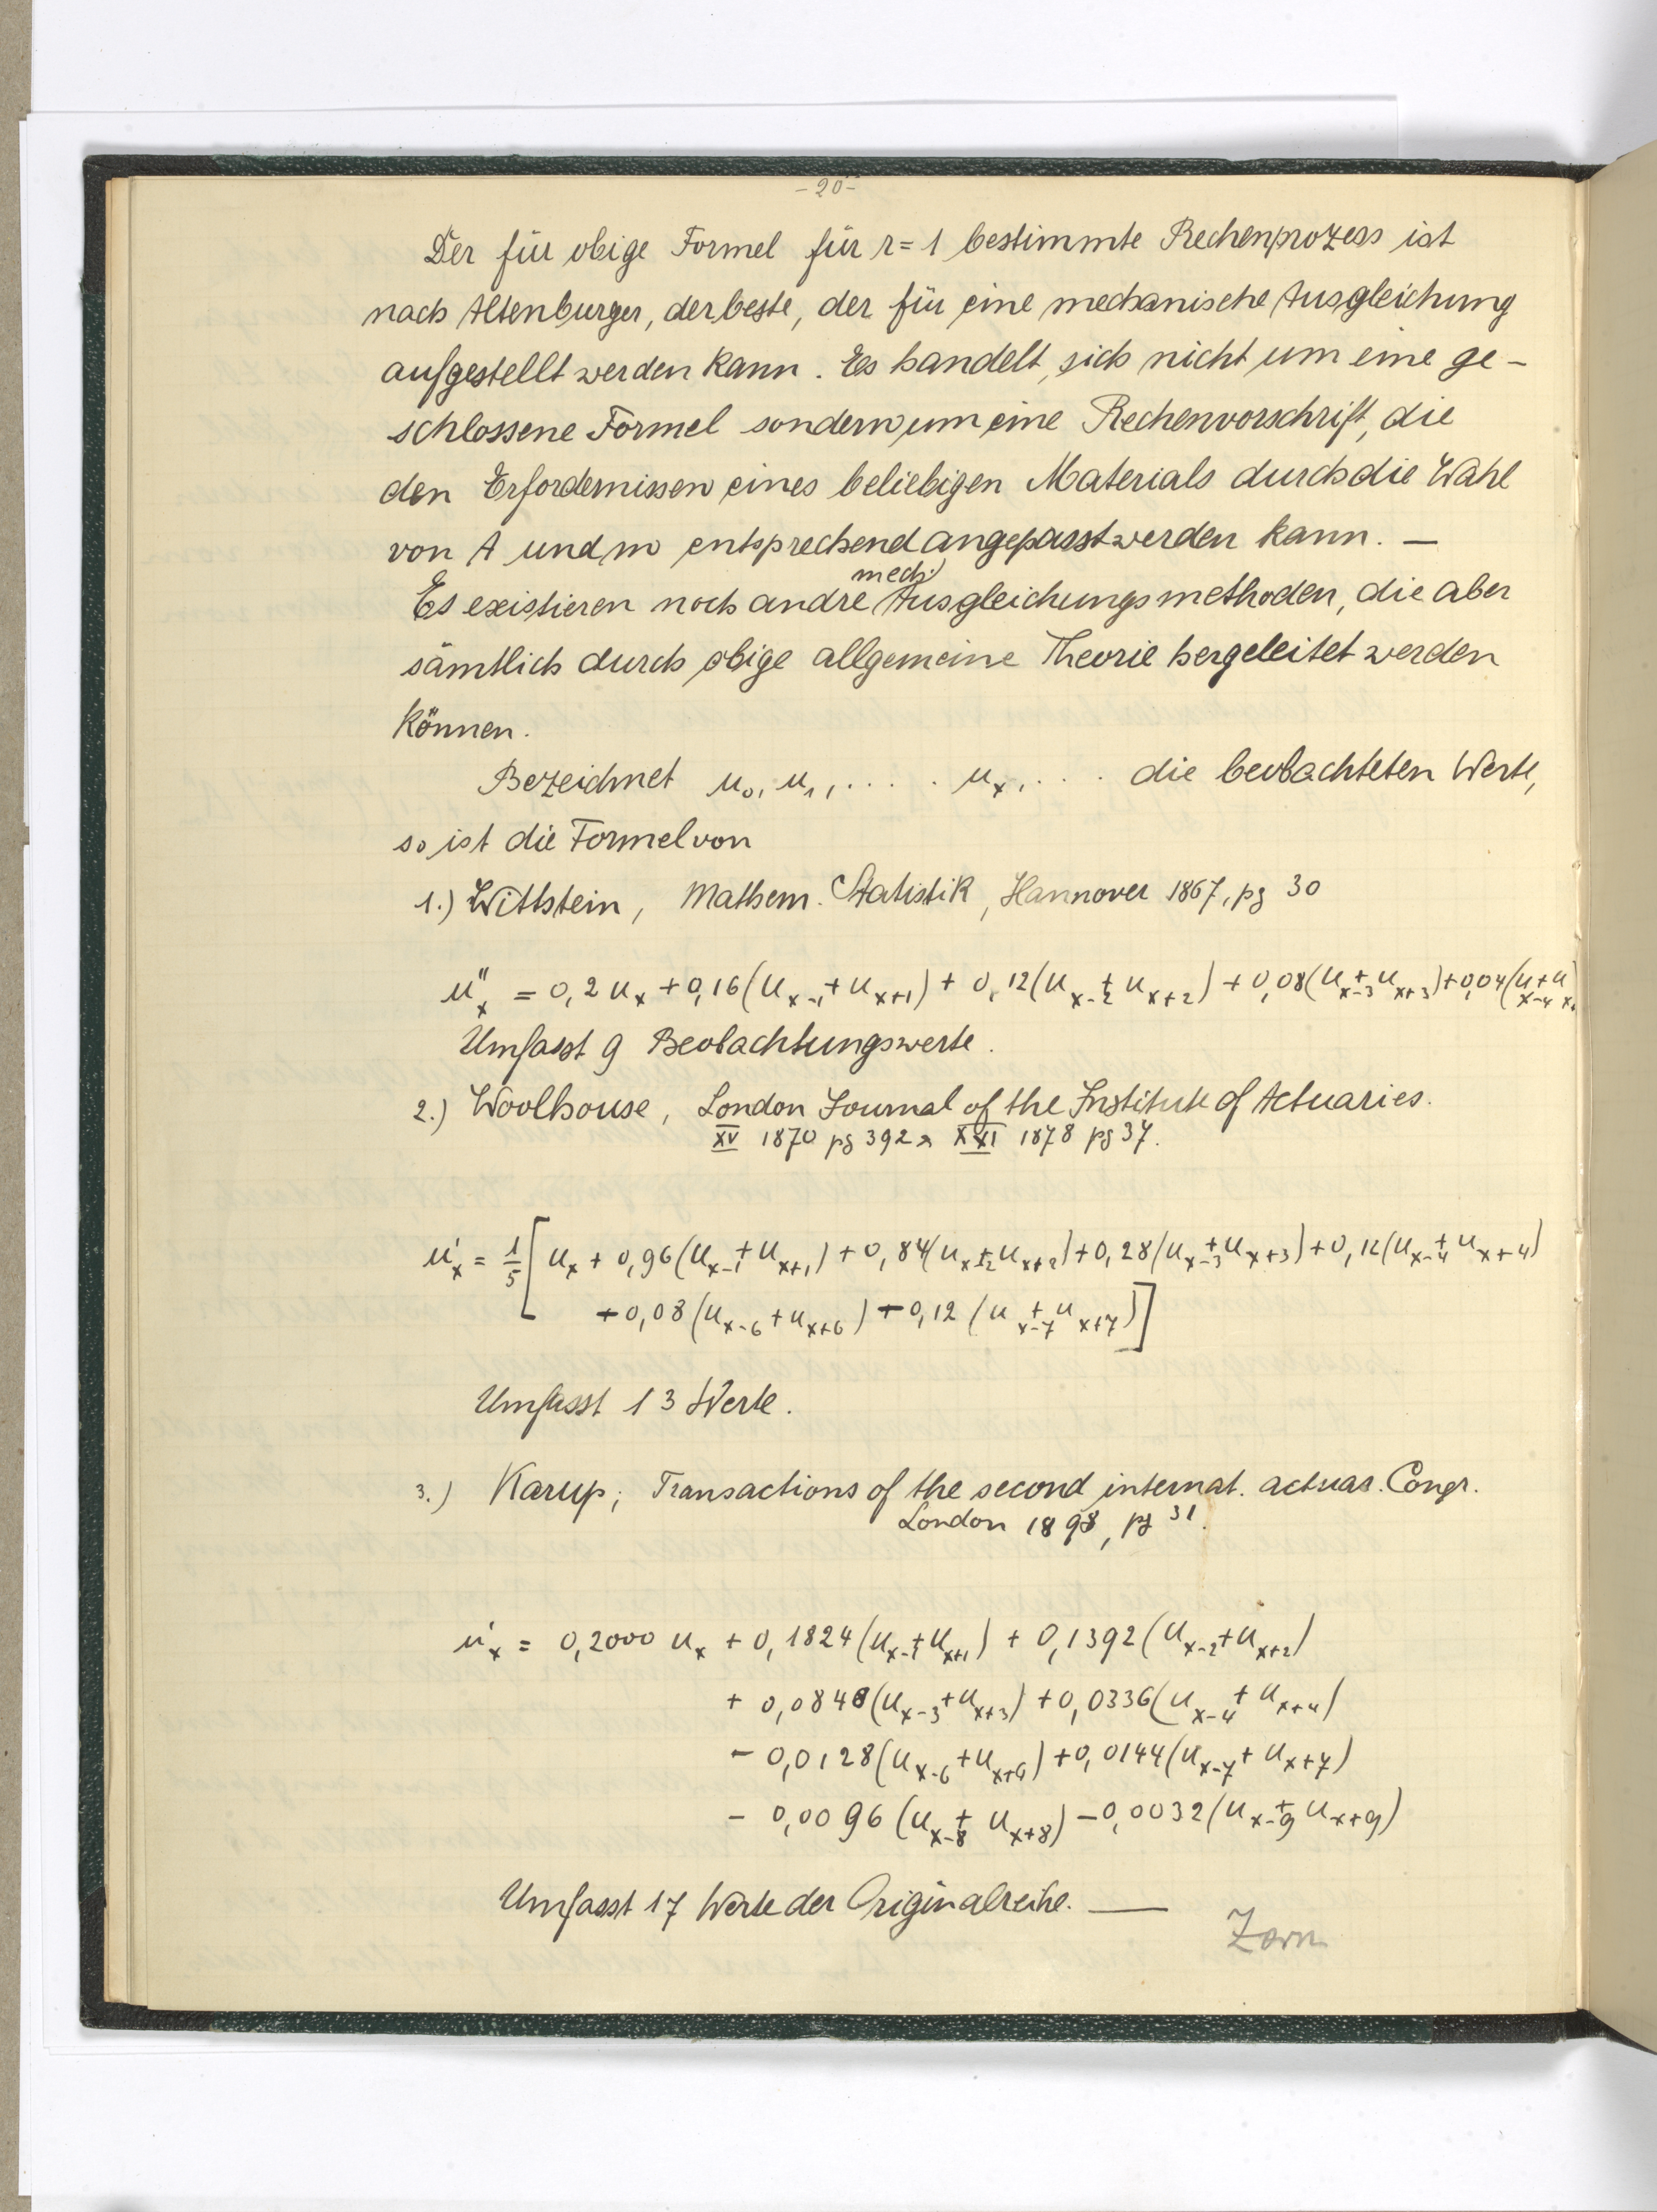 - 20 -
Der für obige Formel für r = 1 bestimmte Rechenprozess ist
nach Altenburger, der beste, der für eine mechanische Ausgleichung
aufgestellt werden kann. Es handelt sich nicht um eine ge-
schlossene Formel sondern um eine Rechenvorschrift, die
den Erfordernissen eines beliebigen Materials durch die Wahl
von A und m entsprechend angepasst werden kann. —
mech.
Es existieren noch andre Ausgleichungsmethoden, die aber
sämtlich durch obige allgemeine Theorie hergeleitet werden
können.
Bezeichnet u₀, u₁, . . . . uₓ, . . . die beobachteten Werte,
so ist die Formel von
1.) Wittstein, Mathem. Statistik, Hannover 1867, pg 30
u''ₓ = 0,2 uₓ + 0,16(uₓ₋₁ + uₓ₊₁) + 0,12(uₓ₋₂ + uₓ₊₂) + 0,08(uₓ₋₃ + uₓ₊₃) + 0,04(uₓ₋₄ + uₓ₊
Umfasst 9 Beobachtungswerte.
2.) Woolhouse, London Journal of the Institute of Actuaries.
XV 1870 pg 392 & XXI 1878 pg 37.
u'ₓ = 1/5 [ uₓ + 0,96(uₓ₋₁ + uₓ₊₁) + 0,84(uₓ₋₂ + uₓ₊₂) + 0,28(uₓ₋₃ + uₓ₊₃) + 0,12(uₓ₋₄ + uₓ₊₄)
+ 0,08(uₓ₋₆ + uₓ₊₆) + 0,12(uₓ₋₇ + uₓ₊₇) ]
Umfasst 13 Werte.
3.) Karup; Transactions of the second internat. actuar. Congr.
London 1898, pg 31.
u'ₓ = 0,2000 uₓ + 0,1824(uₓ₋₁ + uₓ₊₁) + 0,1392(uₓ₋₂ + uₓ₊₂)
+ 0,0848(uₓ₋₃ + uₓ₊₃) + 0,0336(uₓ₋₄ + uₓ₊₄)
- 0,0128(uₓ₋₆ + uₓ₊₆) + 0,0144(uₓ₋₇ + uₓ₊₇)
- 0,0096(uₓ₋₈ + uₓ₊₈) - 0,0032(uₓ₋₉ + uₓ₊₉)
Umfasst 17 Werte der Originalreihe. —
Zorn